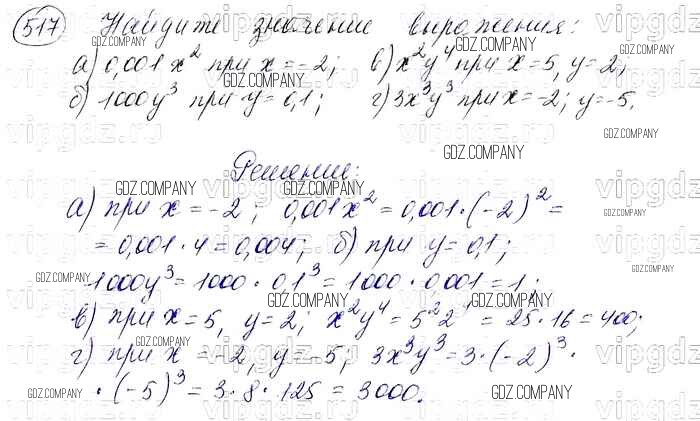 517 Найдите значение выражения:
а) 0,001x² при x = -2; в) x²y⁴ при x = 5, y = 2;
б) 1000y³ при y = 0,1; г) 3x³y³ при x = -2; y = -5.
Решение:
а) при x = -2; 0,001x² = 0,001 · (-2)² =
= 0,001 · 4 = 0,004; б) при y = 0,1;
1000y³ = 1000 · 0,1³ = 1000 · 0,001 = 1;
в) при x = 5, y = 2; x²y⁴ = 5²2⁴ = 25 · 16 = 400;
г) при x = -2, y = -5; 3x³y³ = 3 · (-2)³ ·
· (-5)³ = 3 · 8 · 125 = 3000.